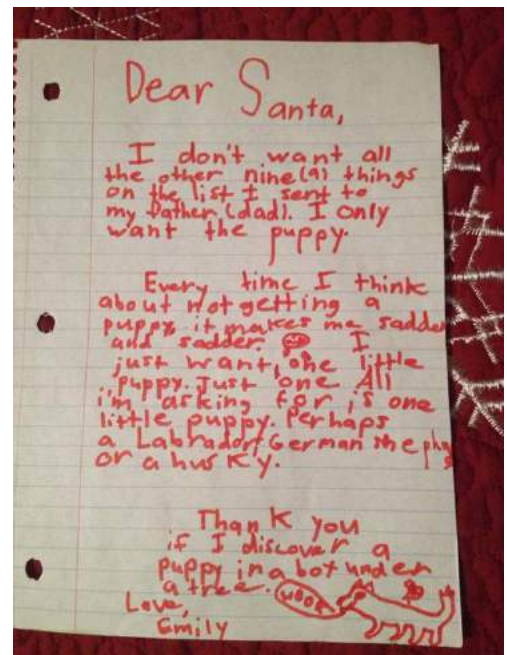 Dear Santa,
I don't want all
the other nine(9) things
on the list I sent to
my father (dad). I only
want the puppy.
Every time I think
about not getting a
puppy, it makes me sadder
and sadder. I
just want, one little
puppy. Just one All
i'm asking for is one
little puppy. Perhaps
a Labrador, German
or a husky.
Thank you
if I discover a
puppy in a box under
a tree.
Love,
Emily